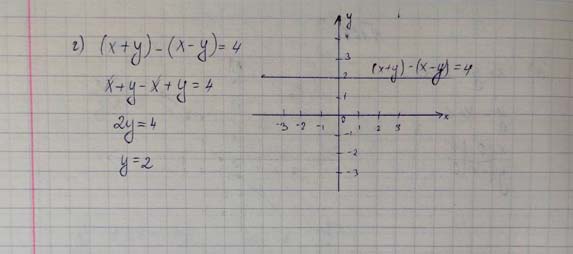 г) (x+y)-(x-y)=4
x+y-x+y=4
2y=4
y=2
y
4
3
2
(x+y)-(x-y)=4
1
-3 -2 -1 0 1 2 3 x
-1
-2
-3